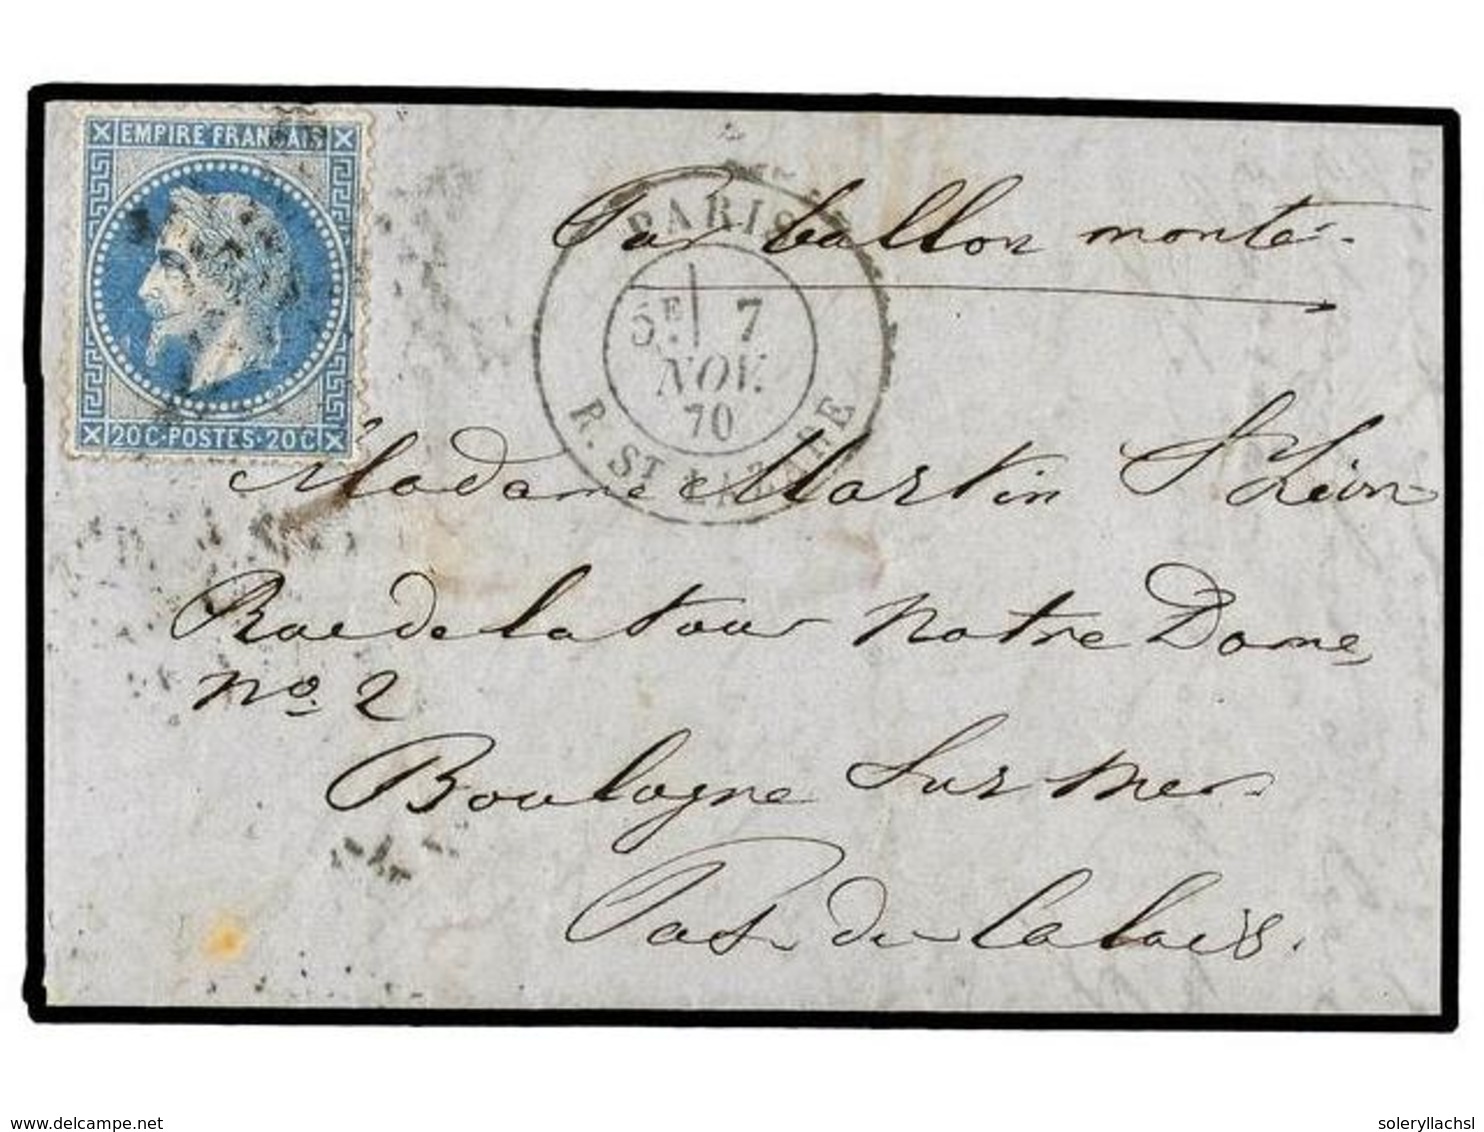 EMPIRE FRANÇAIS
20 C · POSTES · 20 C
PARIS
5E 7
NOV.
70
R. ST LAZARE
Par ballon monté.
Madame Martin St Léon
Rue de la tour Notre Dame,
No. 2
Boulogne Sur mer.
Pas de Calais.
delcampe.net
soleryllachsl